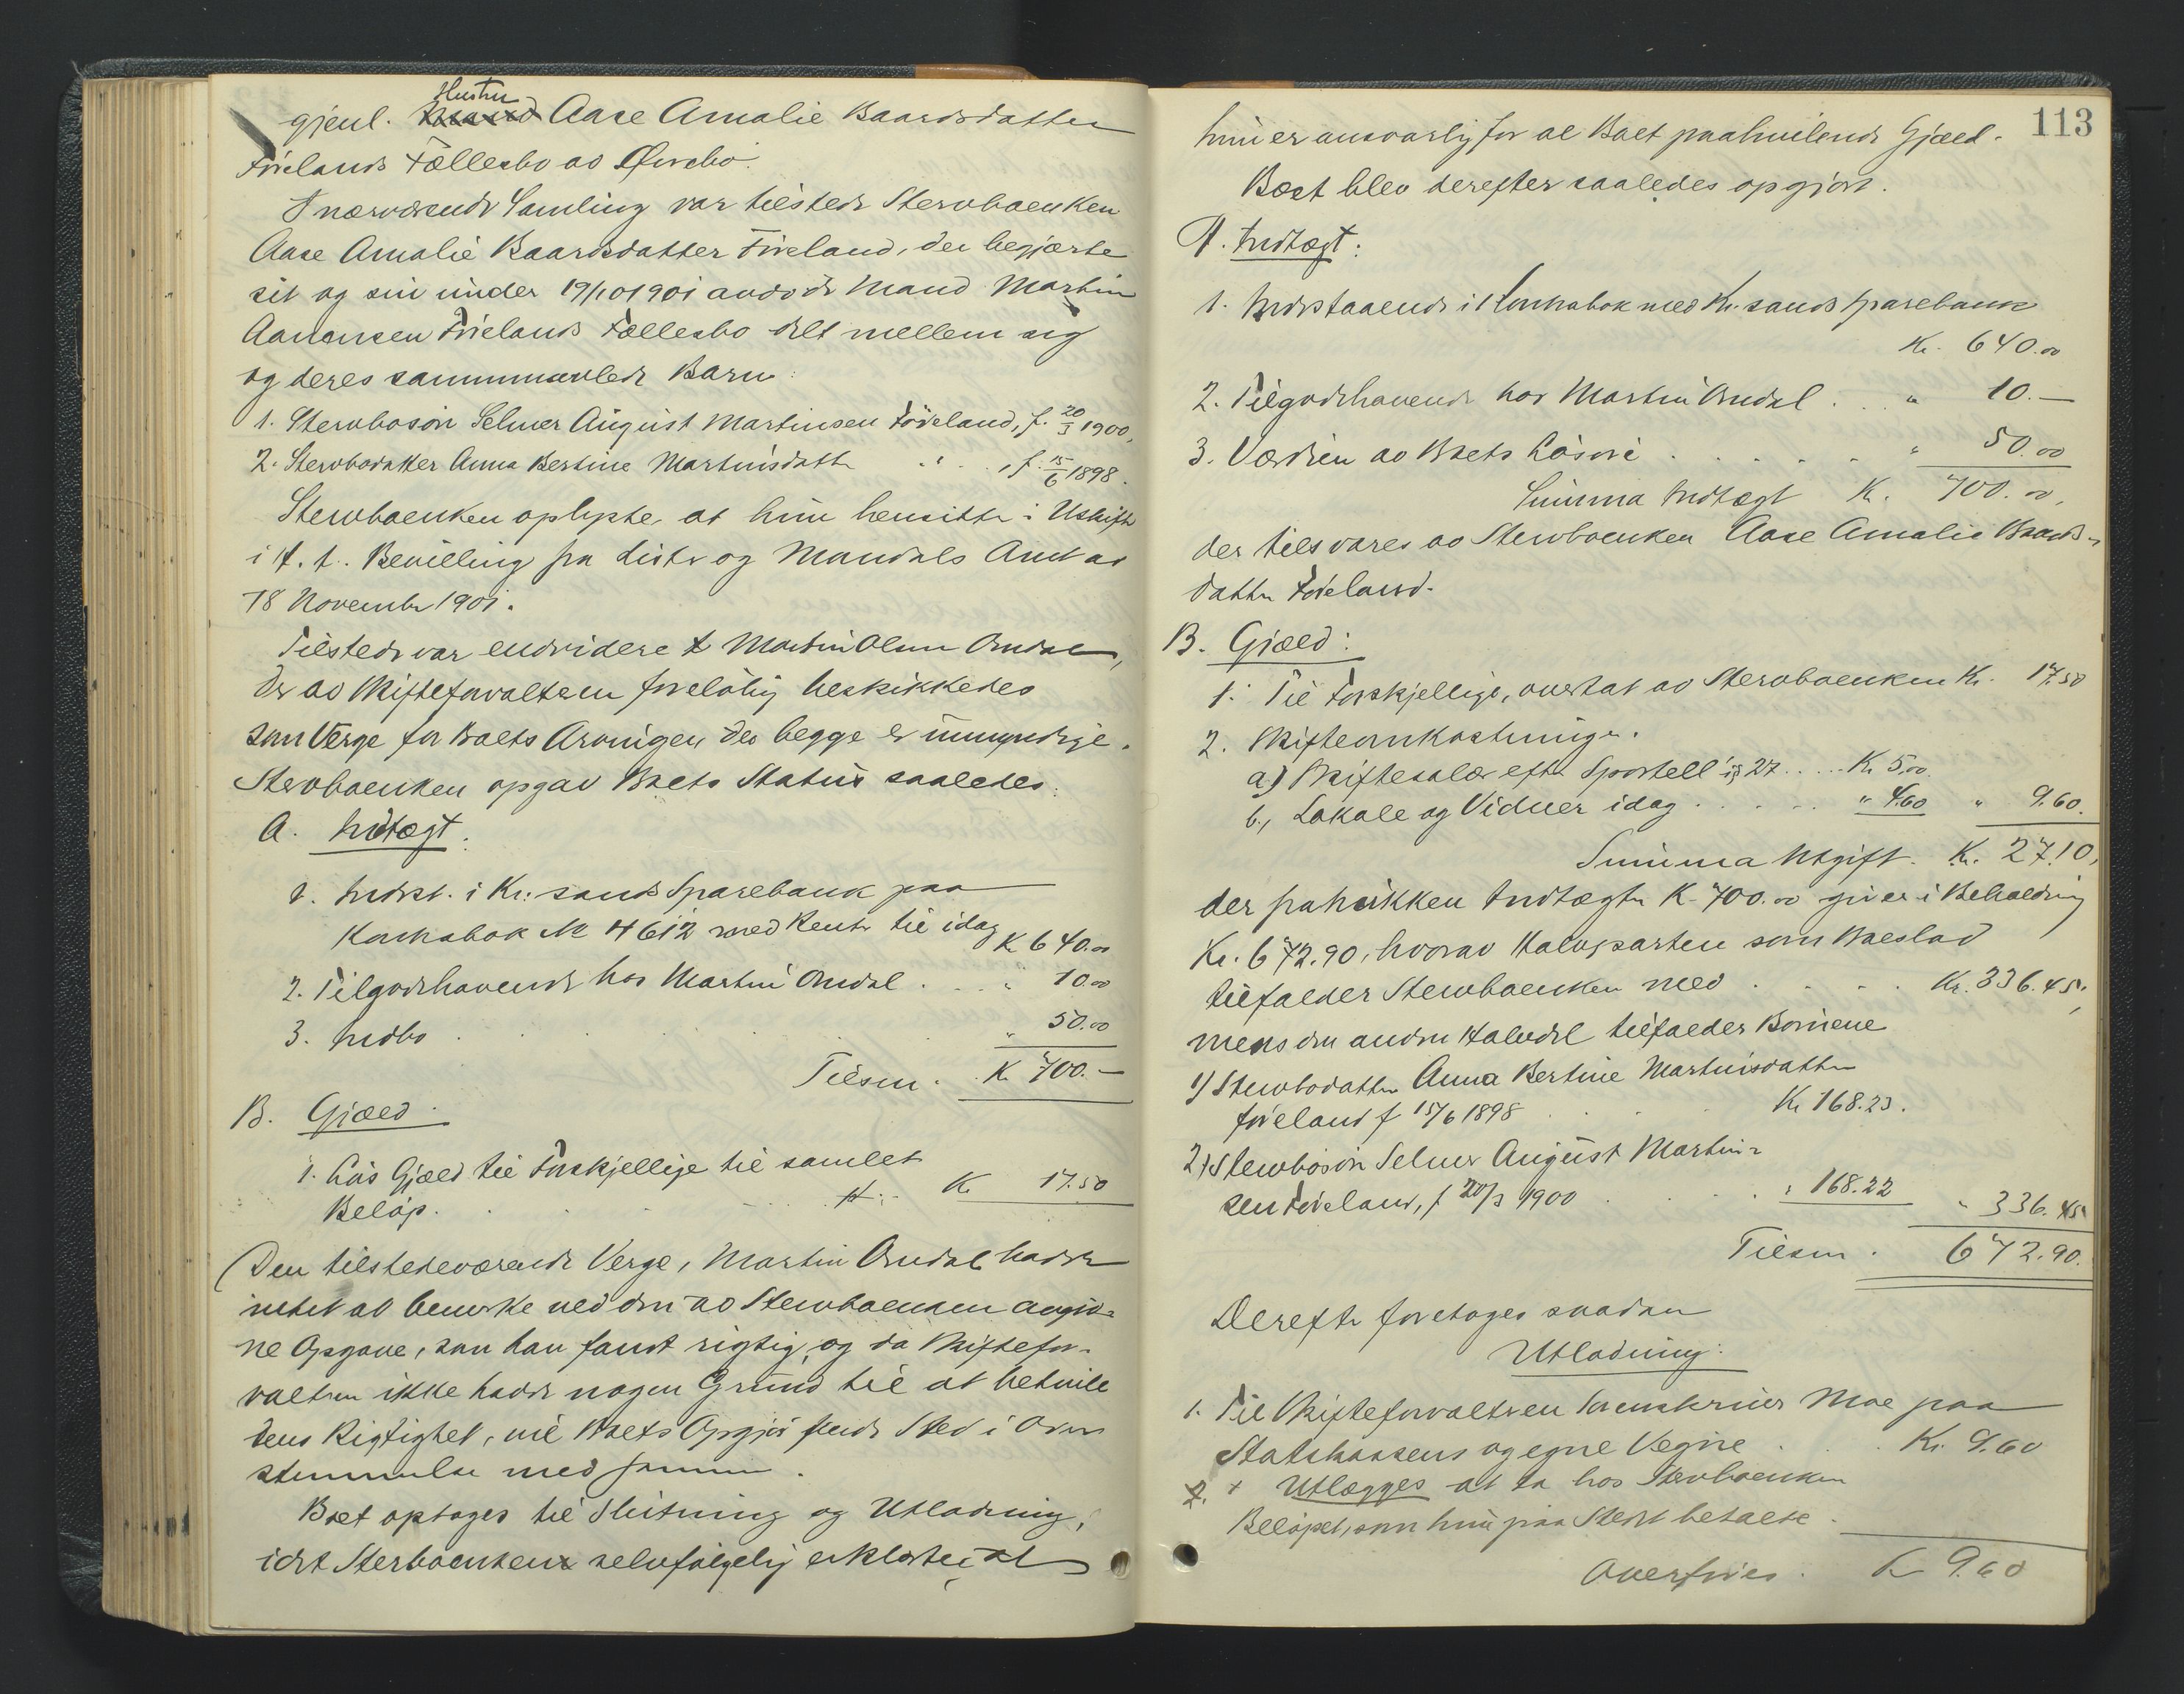 Hustru
gjenl. Mand Aase Amalie Baardsdatter
Fivelands Fællesbo av Øvrebø.
I nærværende Samling var tilstede Stervboenken
Aase Amalie Baardsdatter Fiveland, der begjærte
sit og sin under 19/10 1901 avdøde Mand Martin
Aanensen Fivelands Fællesbo delt mellem sig
og deres sammenavlede Barn:
1. Stervbosøn Selmer August Martinsen Fiveland, f. 20/3 1900,
2. Stervbodatter Anna Bertine Martinsdatter " , f. 15/6 1898.
Stervboenken oplyste, at hun hensitter i Uskifte
i f. t. Bevilling fra Lister og Mandals Amt av
18 November 1901.
Tilstede var endvidere Martin Olsen Omdal,
der av Skifteforvalteren foreløbig beskikkedes
som Verge for Boets Arvinger, der begge er umyndige.
Stervboenken opgav Boets Status saaledes:
A. Indtægt:
1. Indst. i Kr:sands Sparebank paa
Kontrabok No 4612 med Renter til idag Kr 640.00
2. Tilgodehavende hos Martin Omdal . . . " 10.00
3. Indbo . . . . " 50.00
Tilsm. . Kr 700.—
B. Gjæld:
1. Løs Gjæld til Forskjellige til samlet
Beløp. . . . Kr 17.50
Den tilstedeværende Verge, Martin Omdal hadde
intet at bemerke ved den av Stervboenken angiv-
ne Opgave, som han fandt rigtig, og da Skiftefor-
valteren ikke hadde nogen Grund til at betvile
dens Rigtighet, vil Boets Opgjør finde Sted i Overens
stemmelse med samme.
Boet optages til Slutning og Utlodning,
idet Stervboenken selvfølgelig erklærte, at
113
hun er ansvarlig for al Boet paahvilende Gjæld.
Boet blev derefter saaledes opgjort.
A. Indtægt:
1. Indestaaende i Kontrabok med Kr.sands Sparebank
Kr. 640.00
2. Tilgodehavende hos Martin Omdal . . . " 10.—
3. Værdien av Boets Løsøre . . . . . " 50.00
Summa Indtægt Kr. 700.00,
der tilsvares av Stervboenken Aase Amalie Baards-
datter Fiveland.
B. Gjæld:
1. Til Forskjellige, overtat av Stervboenken Kr. 17.50
2. Skifteomkostninger.
a) Skiftesalær efter Sportell § 27 .... Kr 5.00
b., Lokale og Vidner idag . . . . . " 4.60 " 9.60.
Summa Utgift. Kr. 27.10,
der fratrukken Indtægten Kr. 700.00 giver i Beholdning
Kr. 672.90, hvorav Halvparten som Boeslod
tilfalder Stervboenken med . . . . Kr. 336.45,
mens den anden Halvdel tilfalder Børnene
1) Stervbodatter Anna Bertine Martinsdatter
Fiveland f 15/6 1898 . . . Kr 168.23.
2) Stervbosøn Selmer August Martin-
sen Fiveland, f 20/3 1900 . . . " 168.22 " 336.45
Tilsm . 672.90.
Derefter foretoges saadan
Utlodning:
1. Til Skifteforvalteren Sorenskriver Moe paa
Statskassens og egne Vegne . . . Kr. 9.60
Utlægges at ta hos Stervboenken
Beløpet, som hun paa Stedet betalte.
Overføres . Kr 9.60